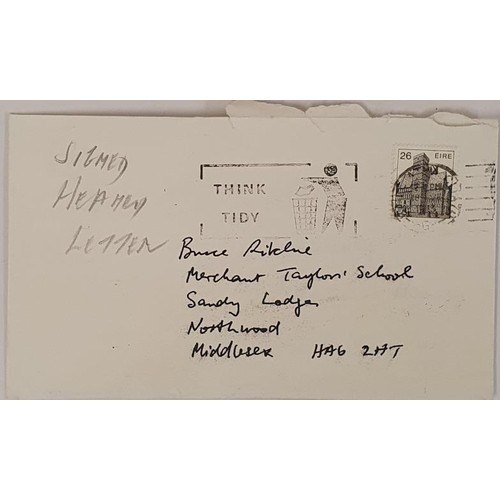 SIGNED
HEANEY
LETTER
THINK
TIDY
26 EIRE
Bruce Ritchie
Merchant Taylors' School
Sandy Lodge
Northwood
Middlesex HA6 2HT